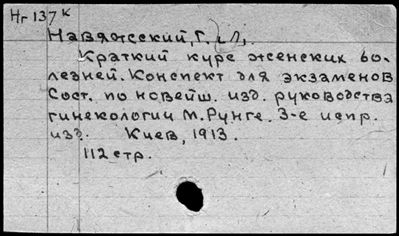 Нг 137 к
Навяжсский, Г. Л,.
Краткий курс женских бо-
лезней. Конспект для экзаменов
Сост. по новейш. изд. руководства
гинекологии М. Рунге. 3-е испр.
изд. Киев, 1913.
112 стр.